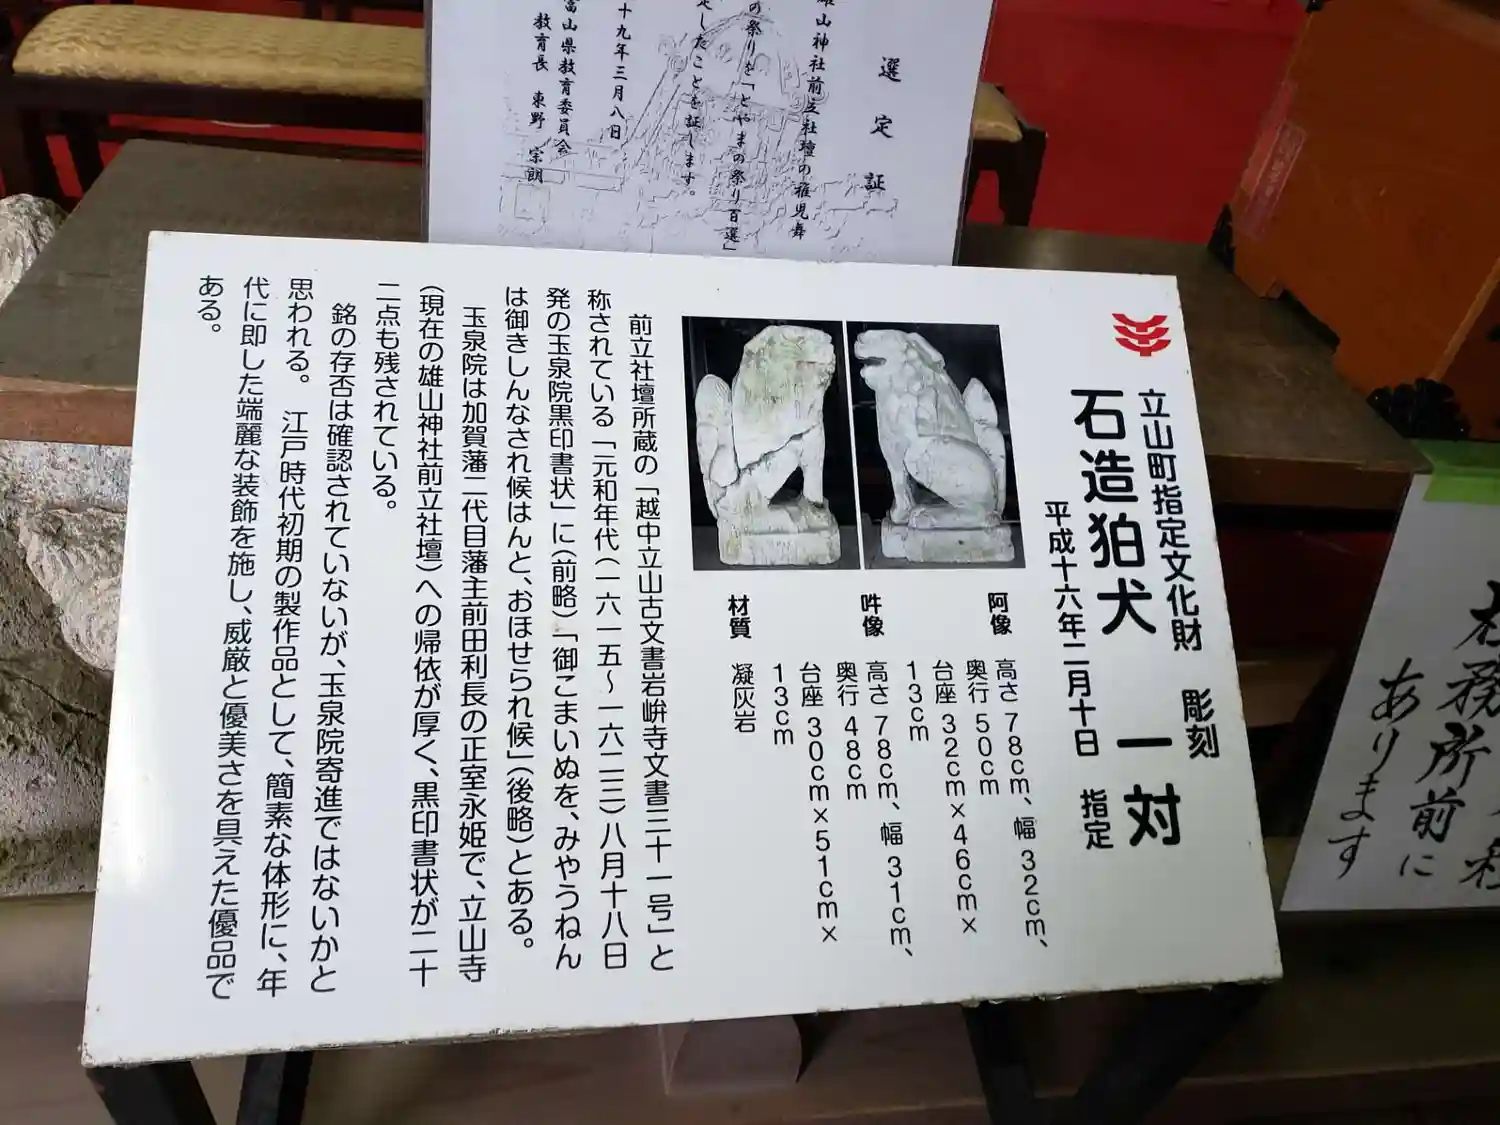 選定証
雄山神社前立社壇の稚児舞
の祭りを「とやまの祭り百選」
定したことを証します。
十九年三月八日
富山県教育委員会
教育長 東野 宗朗
立山町指定文化財 彫刻
石造狛犬 一対
平成十六年二月十日 指定
阿像 高さ 78cm、幅 32cm、
奥行 50cm
台座 32cm×46cm×
13cm
吽像 高さ 78cm、幅 31cm、
奥行 48cm
台座 30cm×51cm×
13cm
材質 凝灰岩
前立社壇所蔵の「越中立山古文書岩峅寺文書三十一号」と
称されている「元和年代(一六一五〜一六二三)八月十八日
発の玉泉院黒印書状」に(前略)「御こまいぬを、みやうねん
は御きしんなされ候はんと、おほせられ候」(後略)とある。
玉泉院は加賀藩二代目藩主前田利長の正室永姫で、立山寺
(現在の雄山神社前立社壇)への帰依が厚く、黒印書状が二十
二点も残されている。
銘の存否は確認されていないが、玉泉院寄進ではないかと
思われる。 江戸時代初期の製作品として、簡素な体形に、年
代に即した端麗な装飾を施し、威厳と優美さを具えた優品で
ある。
社務所前に
あります